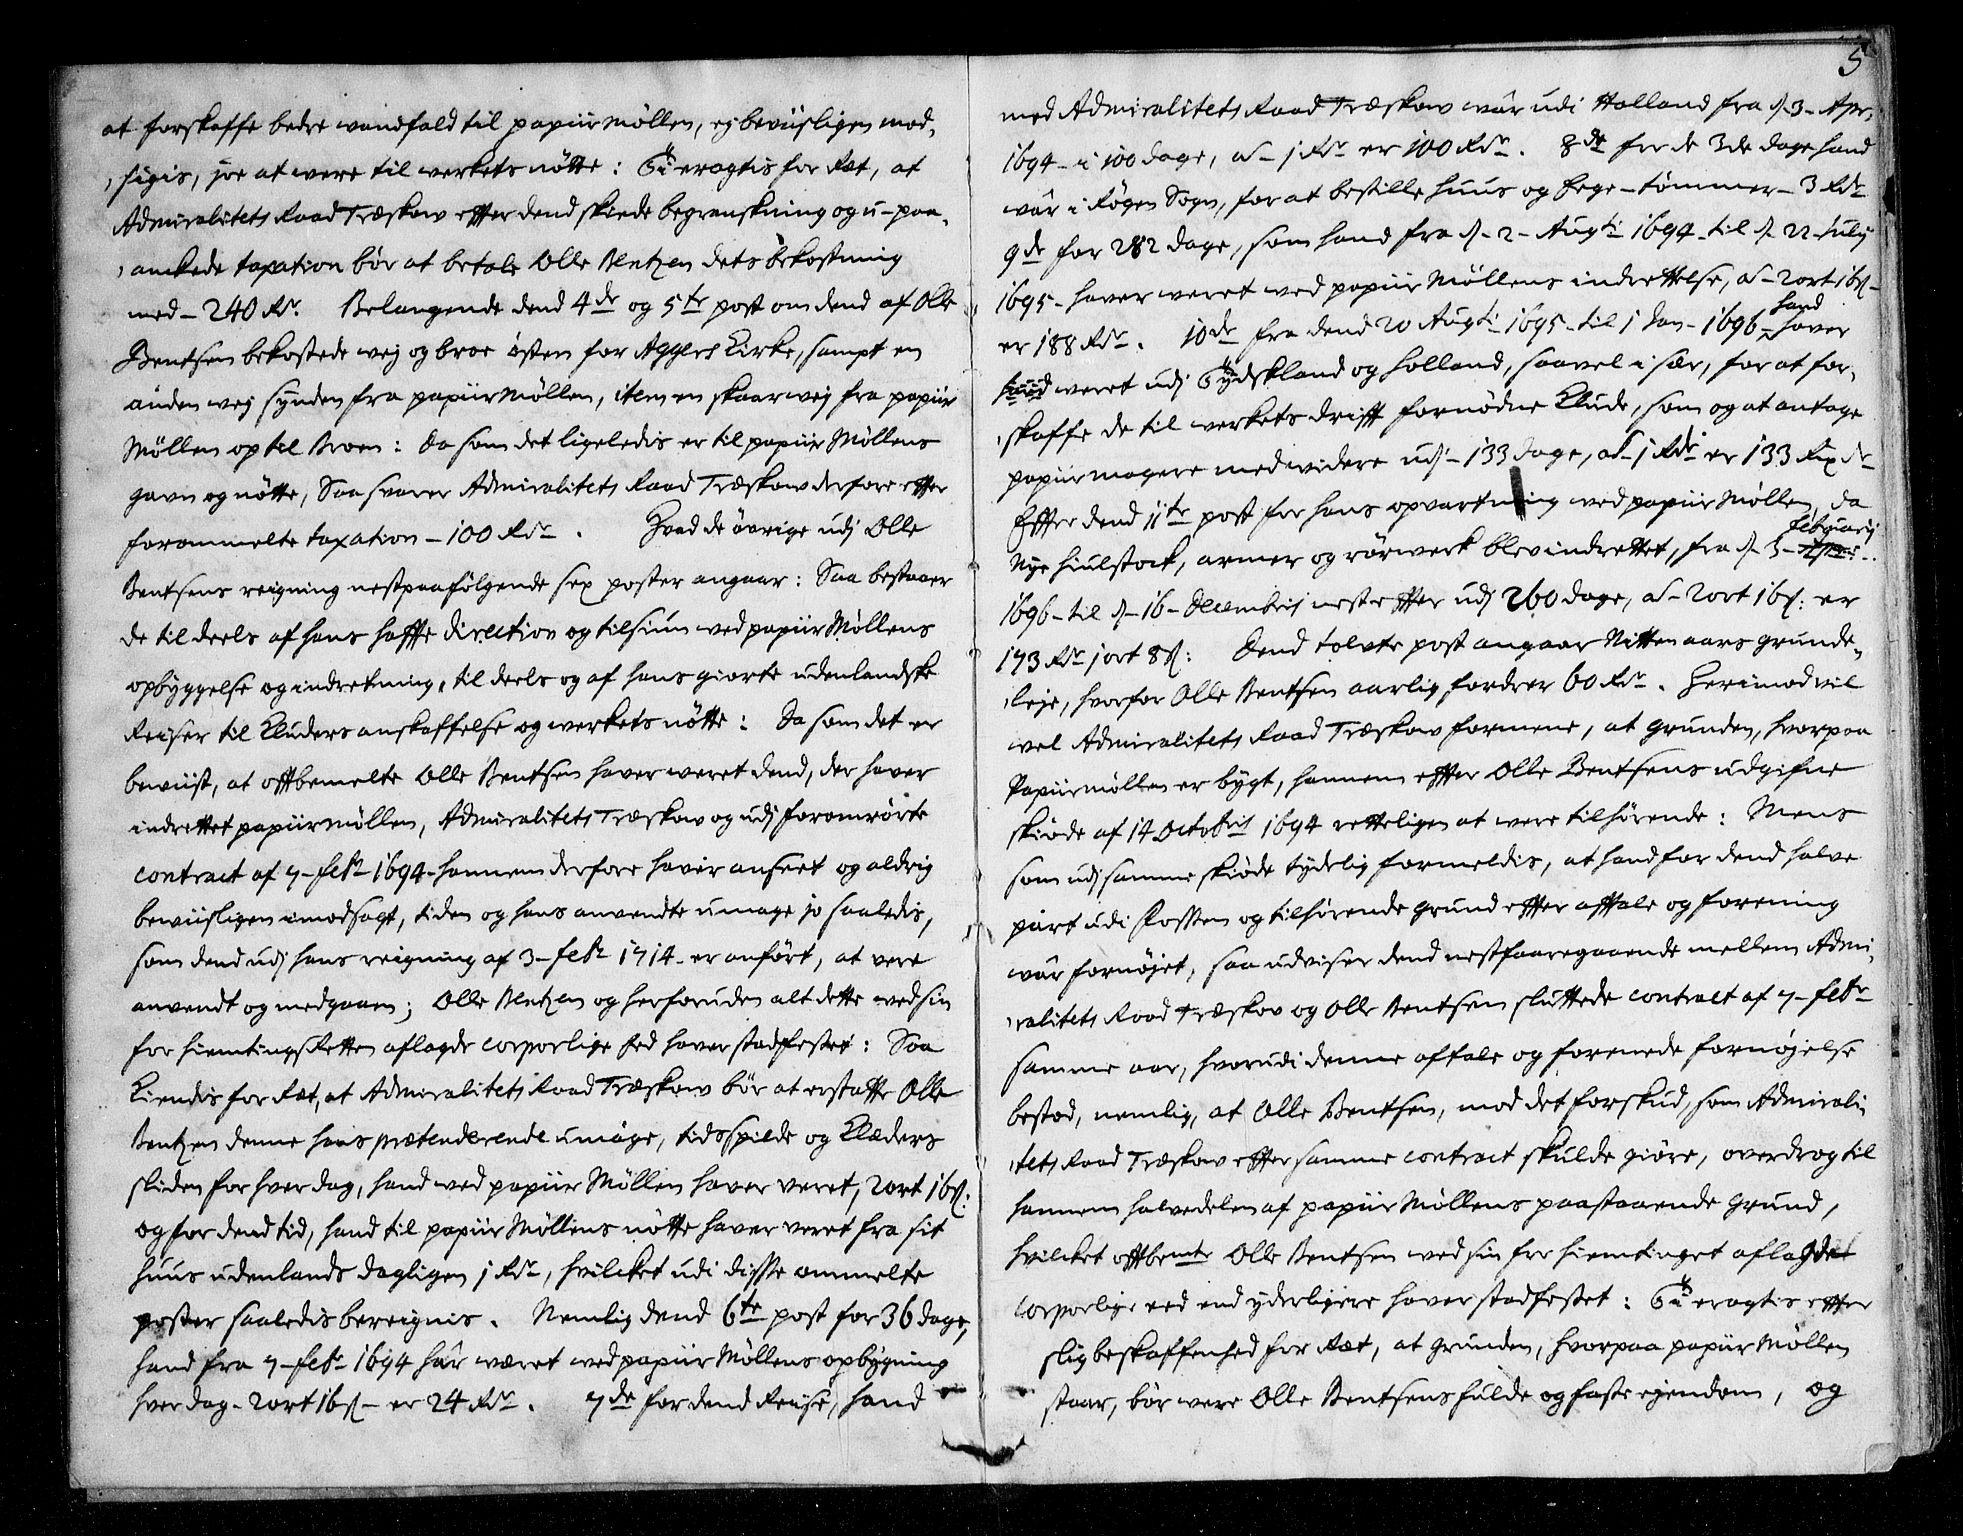 at forskaffe bedre vandfald til papiir Møllen, ej beviisligen mod-
sigis, jo at were til verkets nøtte: eragtis for Ræt, at
Admiralitets Raad Træskow effter dend skeede begranskning og u-paa-
anckede taxation bør at betale Olle Bentzen dets bekostning
med - 240 Rdr. Belangende dend 4de og 5te post om dend af Olle
Bentsen bekostede vej og broe østen for Aggers Kirke, sampt en
anden vej synden fra papiir Møllen, item en skaarvej fra papiir
Møllen op til Broen: Da som det ligeledis er til papiir Møllens
gavn og nøtte, Saa svarer Admiralitets Raad Træskow derfore effter
forommelte taxation - 100 Rdr. Hvad de øvrige udj Olle
Bentsens reigning nestpaafølgende sex poster angaar: Saa bestaaer
de til deels af hans haffte direction og tilsiun ved papiir Møllens
opbyggelse og indretning, til deels og af hans giorte udenlandske
Reiser til Kluders anskaffelse og verkets nøtte: Da som det er
beviist, at offtbemelte Olle Bentsen haver veret dend, der haver
indrettet papiir Møllen, Admiralitets Træskow og udj foromrørte
contract af 7 - febr 1694 - hannem derfore haver anseet og aldrig
beviisligen imodsagt, tiden og hans anvendte umage jo saaledis,
som dend udj hans reigning af 3 - febr 1714 - er anført, at vere
anvendt og medgaaen; Olle Bentzen og herforuden alt dette ved sin
for hiemtings Retten aflagde corporlige Eed haver stadfestet: Saa
Kiendis for Ræt, at Admiralitets Raad Træskow bør at erstatte Olle
Bentzen denne hans prætenderende umage, tidsspilde og Klæders
sliden for hver dag, hand ved papiir Møllen haver veret, 2 ort 16 s:
og for dend tid, hand til papiir Møllens nøtte haver veret fra sit
Huus udenlands dagligen 1 Rdr, hvilcket udi disse ommelte
poster saaledis bereignis. Nemlig dend 6te post for 36 dage,
hand fra 7 - febr 1694 har været ved papiir Møllens opbygning
hver dag - 2 ort 16 s - er 24 Rdr. 7de for dend Reise, hand
5
med Admiralitets Raad Træskow vár udi Holland fra d. 3 - Apr.
1694 - i 100 dage, a 1 Rdr er 100 Rdr. 8de for de 3de dage hand
vár i Røgen Sogn, for at bestille Huus og Ege-tømmer - 3 Rdr
9de for 282 dage, som hand fra d. 2 - Augti 1694 - til d. 22 July
1695 - haver veret ved papiir Møllens indrettelse, a 2 ort 16 s -
er 188 Rdr. 10de fra dend 20 Augti 1695 - til 1 Jan - 1696 - hand haver
veret udj Tydskland og Holland, saavel i sær, for at for-
skaffe de til verkets drifft fornødne Klude, som og at antage
papiirmagere med videre udj - 133 dage, a 1 Rdr er 133 Rix dr
Effter dend 11te post for hans opvartning ved papiir Møllen, da
Nye Hiulstock, armer og rørverk blev indrettet, fra d. 3 - februarij
1696 - til d. 16 - Decembris nest effter udj 260 dage, a 2 ort 16 s: er
173 Rdr 1 ort 8 s: Dend tolvte post angaar Nitten aars grunde-
leje, hvorfor Olle Bentsen aarlig fordrer 60 Rdr. Herimod vil
vel Admiralitets Raad Træskow formene, at grunden, hvorpaa
Papiirmøllen er bygt, hannem effter Olle Bentsens udgifne
skiøde af 14 Octobris 1694 retteligen at were tilhørende: Mens
som udj samme skiøde tydelig formeldis, at hand for dend halve
part udi Fossen og tilhørende grund effter afftale og forening
vár fornøjet, saa udviser dend nestforregaaende mellem Admi-
ralitets Raad Træskov og Olle Bentsen sluttede contract af 7 - febr
samme aar, hvorudi denne aftale og forenede fornøjelse
bestod, nemlig, at Olle Bentsen, mod det forskud, som Admirali-
tets Raad Træskow effter samme contract skulde giøre, overdrog til
hannem halvedelen af papiir Møllens paastaaende grund,
hvilcket offtbemte Olle Bentsen ved sin for hiemtinget aflagde
corporlige eed end yderligere haver stadfestet: eragtis effter
slig beskaffenhed for Ræt, at grunden, hvorpaa papiir Møllen
staar, bør were Olle Bentsens fulde og faste ejendom, og